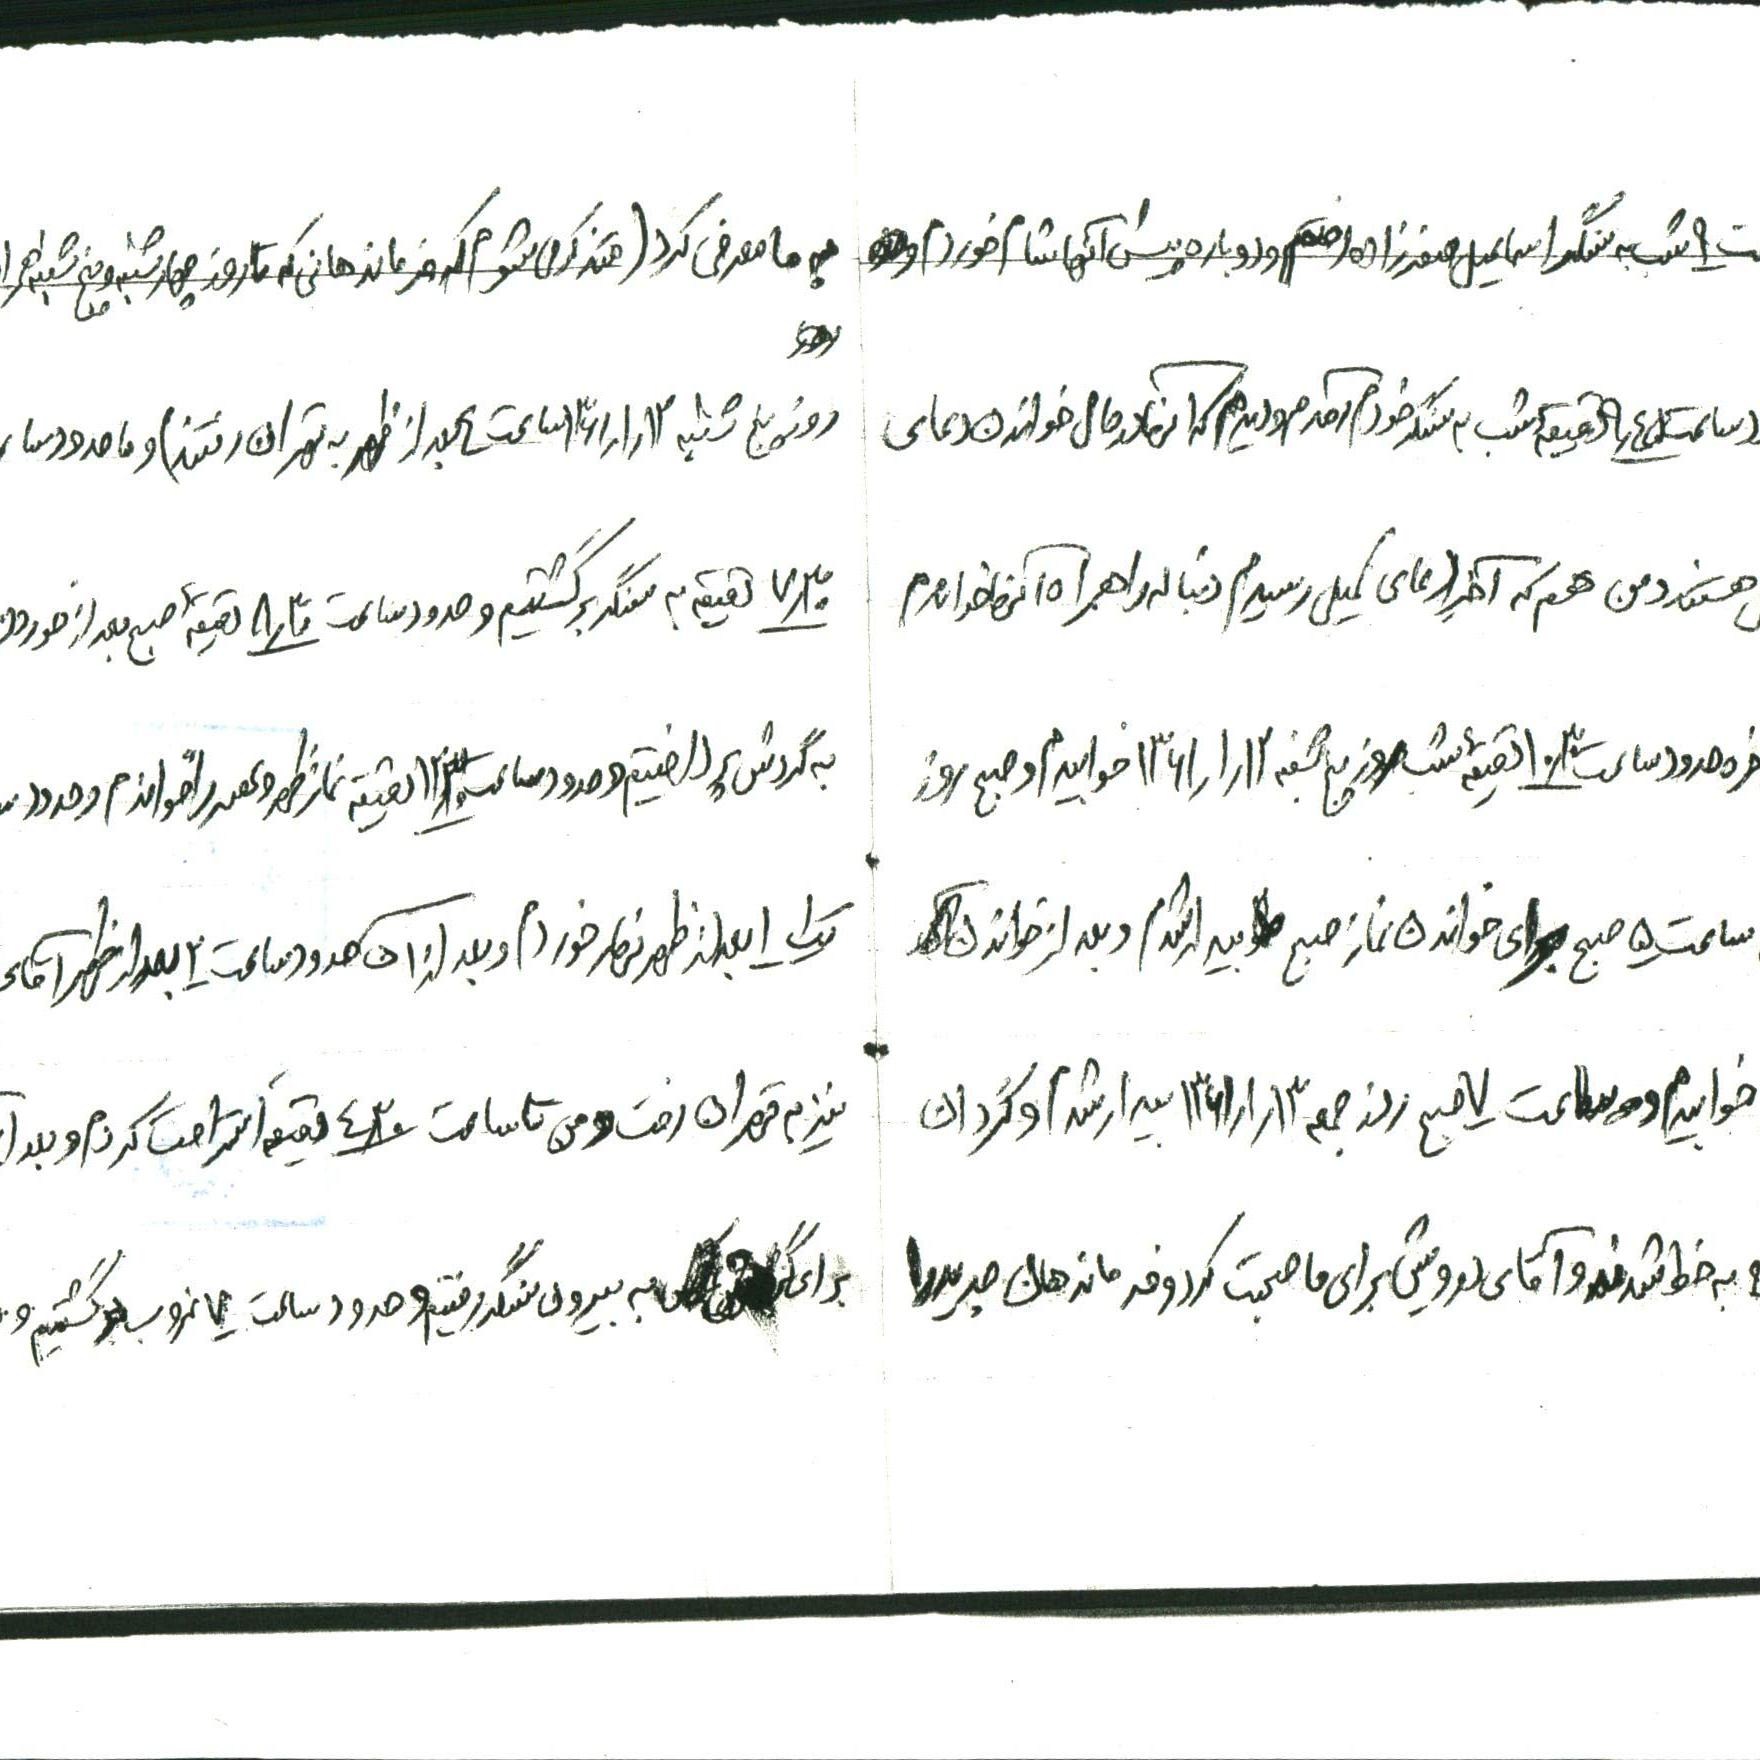 ت ۹ شب به سنگر اسماعیل صفرزاده رفتم و دوباره پیش آنها شام خوردم و
ساعت دقیقه شب به سنگر خودم آمدم و دیدم که آنها در حال خواندن دعای
هستند و من هم که آخر دعای کمیل رسیدم دنباله را همراه آنها خواندم
حدود ساعت ۱۰/۳۰ دقیقه شب روز پنج شنبه ۱۲/۱/۱۳۶۱ خوابیدم و صبح روز
ساعت ۵ صبح برای خواندن نماز صبح بیدار شدم و بعد از خواندن
خوابیدم و ساعت ۷ صبح روز جمعه ۱۳/۱/۱۳۶۱ بیدار شدم و گردان
به خط شدند و آقای درویش برای ما صحبت کرد و فرماندهان جدید را
به ما معرفی کرد (متذکر می شوم که فرماندهانی که تا روز چهارشنبه و پنج شنبه
روز پنج شنبه ۱۲/۱/۱۳۶۱ ساعت ٤ بعد از ظهر به تهران رفتند) و ما حدود
۷/۳۰ دقیقه به سنگر برگشتیم و حدود ساعت ۸/۳۰ دقیقه صبح بعد از خوردن
به گردش پرداختیم و حدود ساعت ۱۲/۳۰ دقیقه نماز ظهر و عصر را خواندم و حدود
یک ۱ بعد از ظهر نهار خوردم و بعد از آن حدود ساعت ۲ بعد از ظهر آقای
نیز به تهران رفت و من تا ساعت ٤/۳۰ دقیقه استراحت کردم و بعد
برای به بیرون سنگر رفتیم و حدود ساعت ۷ غروب برگشتیم و